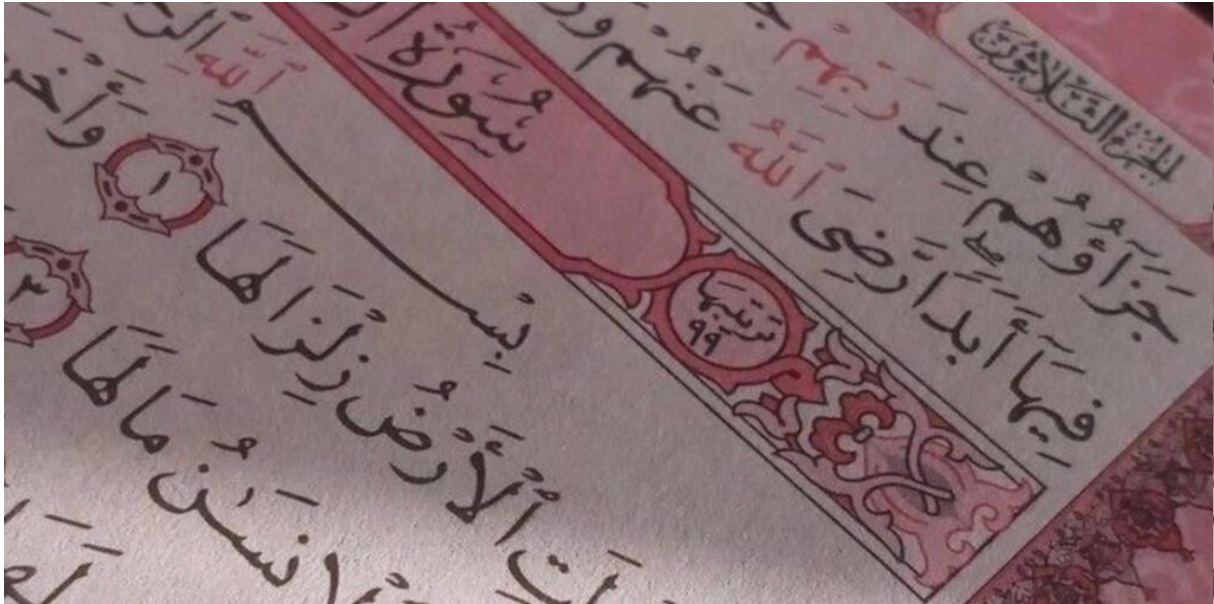 الجزء الثلاثون
جَزَآؤُهُمْ عِندَ رَبِّهِمْ
فِيهَآ أَبَدًا ۖ رَّضِىَ ٱللَّهُ عَنْهُمْ
سُورَةُ
ترتيبها ٩٩
بِسْمِ ٱللَّهِ
ٱلْأَرْضُ زِلْزَالَهَا ١
ٱلْإِنسَٰنُ مَا لَهَا ٣